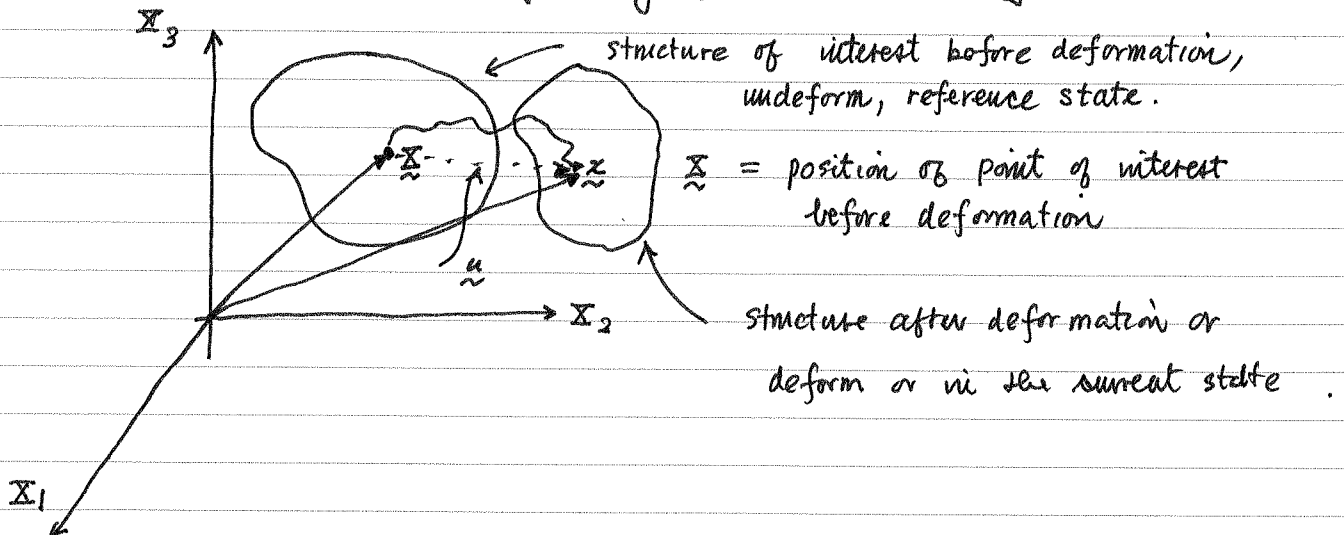 X3
structure of interest before deformation,
undeform, reference state.
X
x
X = position of point of interest
before deformation
u
X2
structure after deformation or
deform or in the current state .
X1